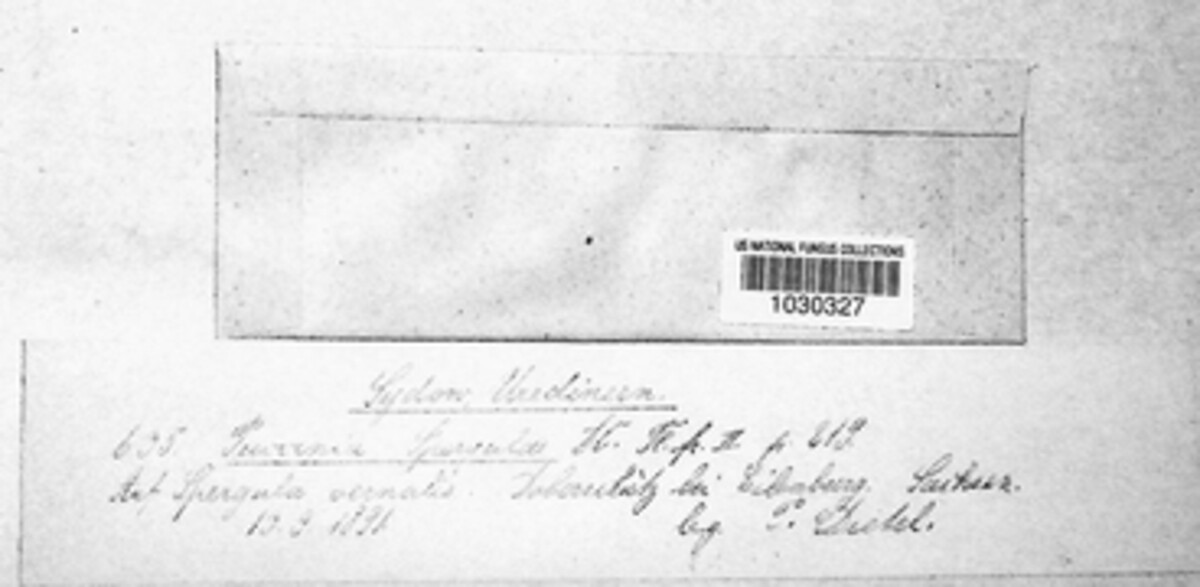 US NATIONAL FUNGUS COLLECTIONS
1030327
Sydow, Uredineen.
635. Puccinia Spergulae p. 219.
Auf Spergula vernalis. bei Eilenburg. Sachsen.
9 1891 lg. P. Dietel.